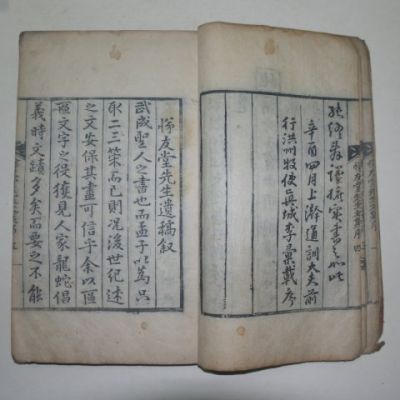 如此
辛酉四月上澣通訓大夫前
行洪州牧使眞城李彙載序
悌友堂先生遺稿叙
武成聖人之書也而孟子以爲只
取二三策而已則況後世紀述
之文安保其盡可信乎余以區
區文字之役獲見人家龍蛇倡
義時文蹟多矣而要之不能